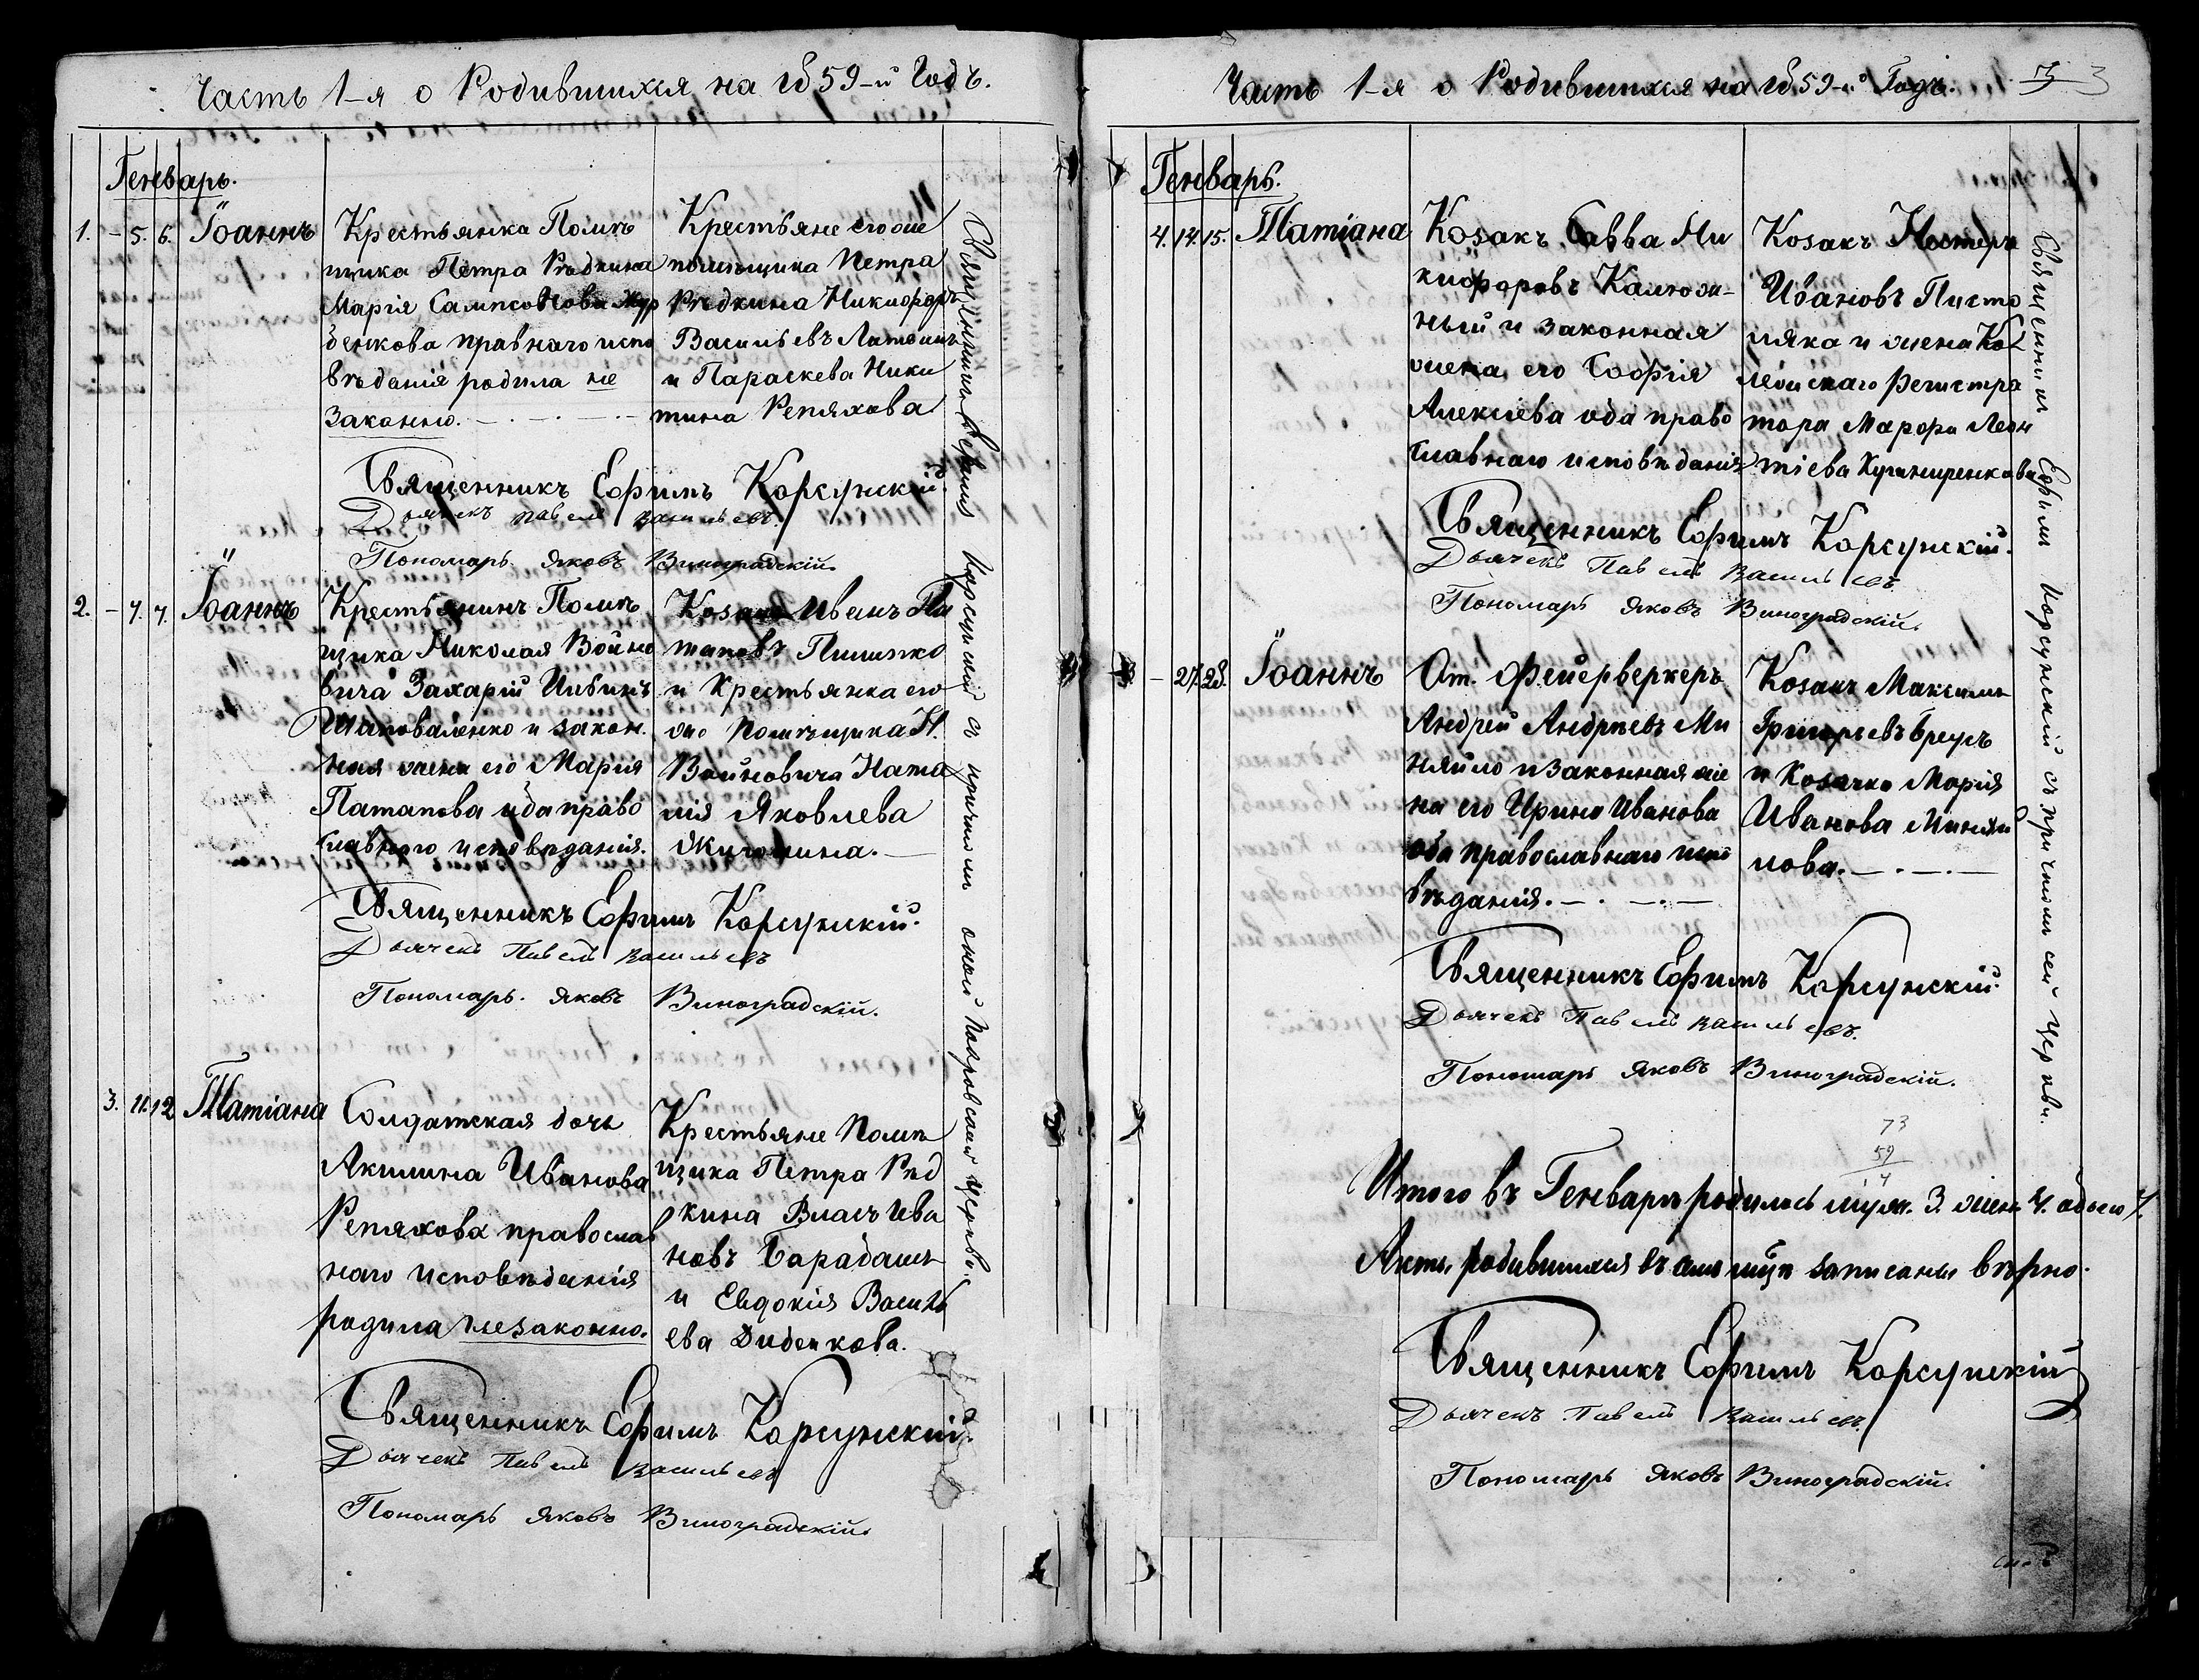 Часть 1-я о Родившихся на 1859-й Годъ.
Генварь.
1. - 5. 6. Іоаннъ
Крестьянка Помѣ
щика Петра Рѣдкина
Марія Сампсонова
денкова прав наго испо
вѣданія родила не
законно.
Крестьяне его же
помѣщика Петра
Рѣдкина Никифоръ
Васильевъ
и Параскева Ники
тина Репяхова
Священникъ Ефимъ Корсунскій.
Дьячекъ Павелъ Васильевъ.
Пономарь Яковъ Виноградскій.
2. - 7. 7. Іоаннъ
Крестьянинъ Помѣ
щика Николая Войно
вича Захарій
Шаповаленко и закон
ная жена его Марія
Патапова оба право
славнаго исповѣданія.
Козакъ Иванъ По
таповъ Пилипко
и Крестьянка его
же Помѣщика Н.
Войновича Ната
лія Яковлева
Священникъ Ефимъ Корсунскій.
Дьячекъ Павелъ Васильевъ
Пономарь Яковъ Виноградскій.
3. 11. 12 Татіана
Солдатская дочь
Акилина Иванова
Репяхова православ
наго исповѣданія
родила незаконно.
Крестьяне Помѣ
щика Петра Рѣд
кина Власъ Ива
новъ Барабашъ
и Евдокія Василь
ева Диденкова.
Священникъ Ефимъ Корсунскій.
Дьячекъ Павелъ Васильевъ
Пономарь Яковъ Виноградскій.
Священникъ Ефимъ Корсунскій съ причтомъ оной Покровской церкви.
Часть 1-я о Родившихся на 1859-й Годъ.
3
Генварь.
4. 14. 15. Татіана
Козакъ Савва Ни
кифоровъ
ный и законная
жена его Софія
Алексіева оба право
славнаго исповѣданія
Козакъ Нестеръ
Ивановъ Писто
ляка и жена Кол
лежскаго Регистра
тора Марфа Леон
тіева
Священникъ Ефимъ Корсунскій.
Дьячекъ Павелъ Васильевъ
Пономарь Яковъ Виноградскій.
- 27. 28. Іоаннъ
От. Фейерверкеръ
Андрей Андрѣевъ Ми
няйло и законная же
на его Ирина Иванова
оба православнаго испо
вѣданія.
Козакъ Максимъ
Григорьевъ Вреусъ
и Козачка Марія
Иванова Миняй
лова.
Священникъ Ефимъ Корсунскій.
Дьячекъ Павелъ Васильевъ.
Пономарь Яковъ Виноградскій.
73
59
Итого въ Генварѣ родилось муж. 3. жен. 4. обоего 7.
Акты родившихся въ семъ мцѣ записаны вѣрно.
Священникъ Ефимъ Корсунскій
Дьячекъ Павелъ Васильевъ.
Пономарь Яковъ Виноградскій.
Священникъ Ефимъ Корсунскій съ причтомъ сей церкви.